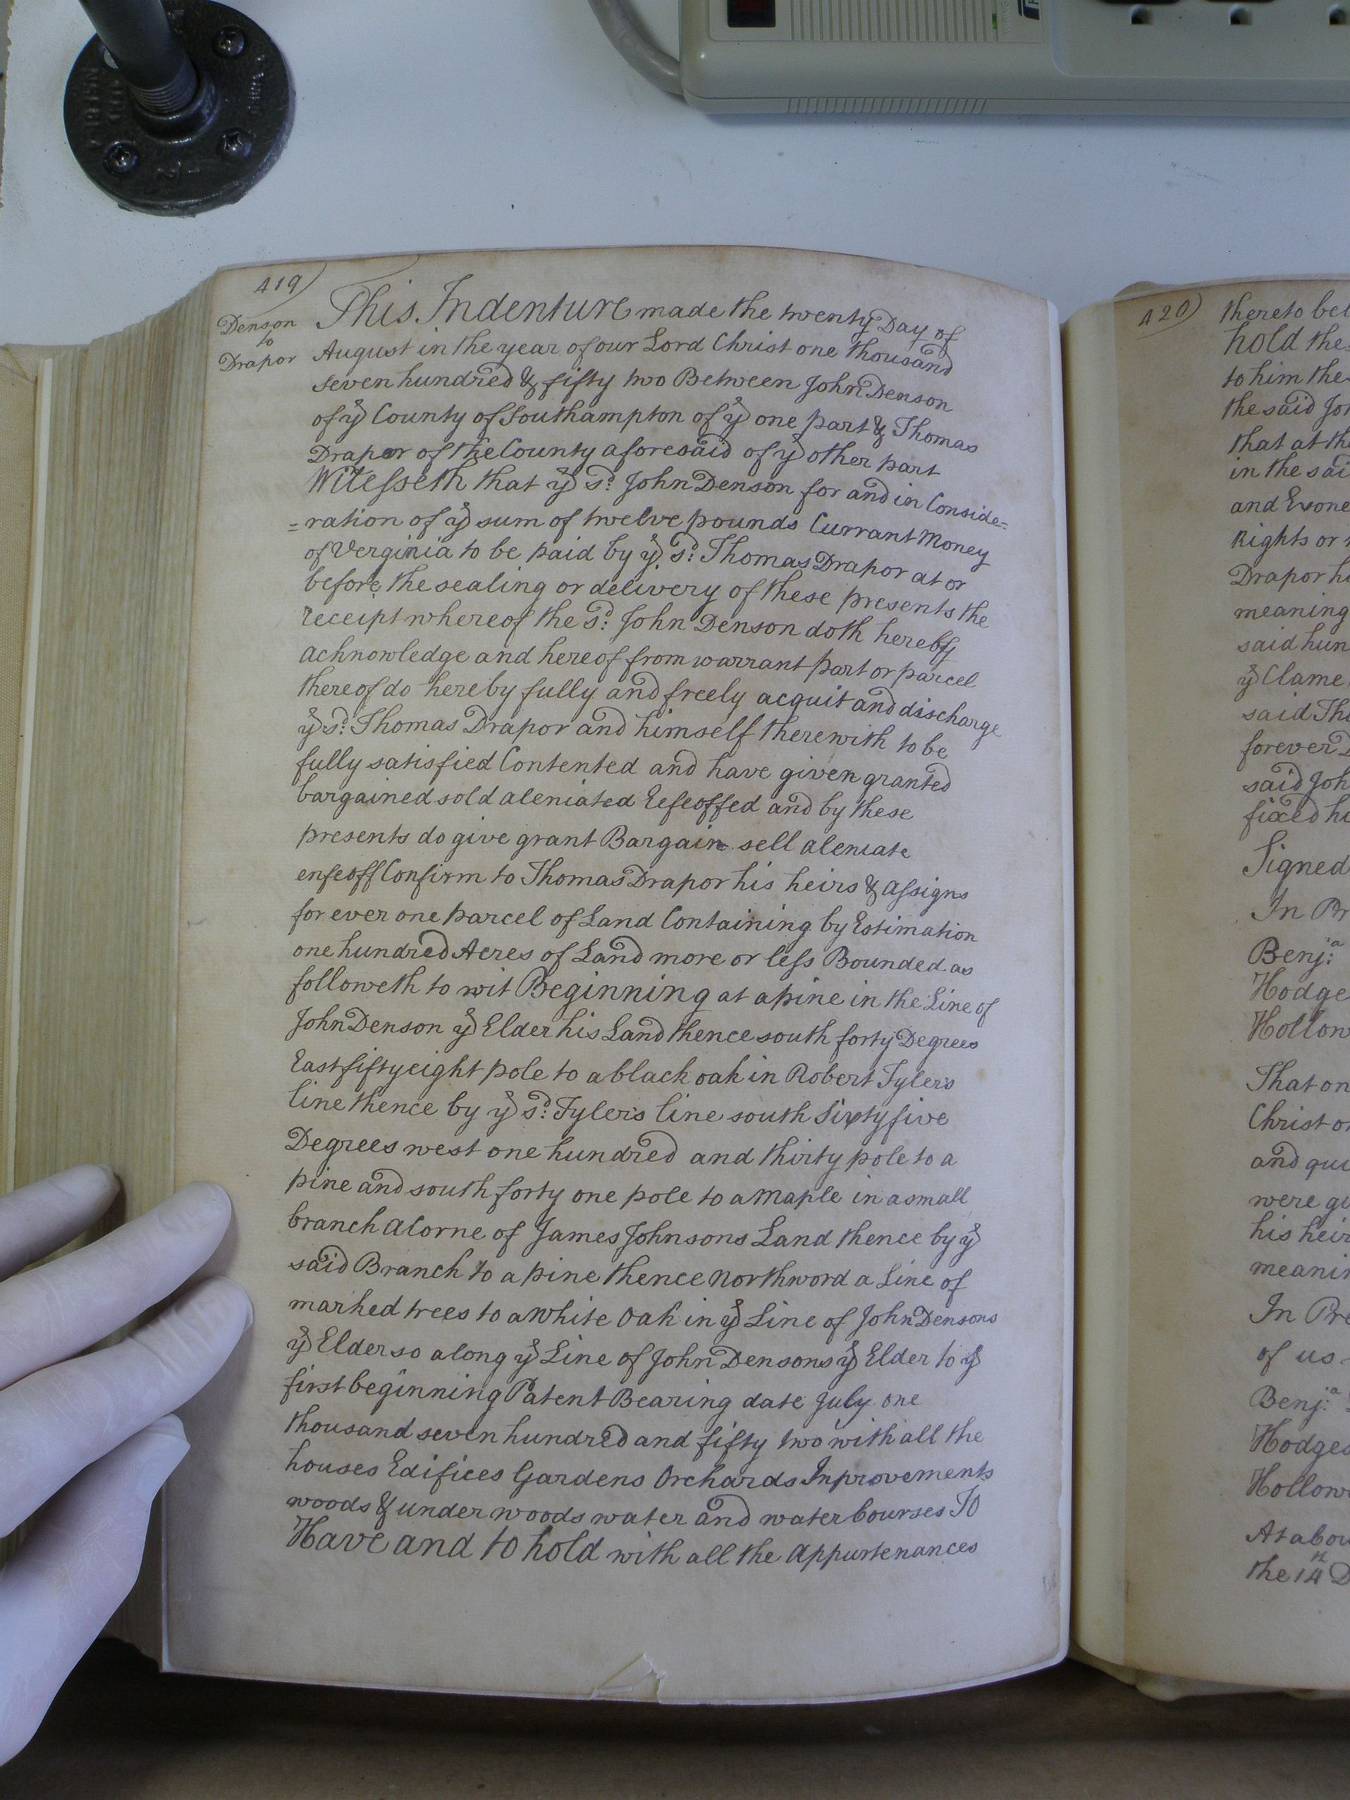 419)
Denson
to
Drapor
This Indenture made the twenty Day of
August in the year of our Lord Christ one thousand
seven hundred & fifty two Between John Denson
of ye County of Southampton of ye one part & Thomas
Drapor of the County aforesaid of ye other part
Witesseth that ye sd: John Denson for and in Conside=
=ration of ye sum of twelve pounds Currant Money
of Verginia to be paid by ye sd: Thomas Drapor at or
before the sealing or delivery of these presents the
receipt whereof the sd: John Denson doth hereby
acknowledge and hereof from warrant part or parcel
thereof do hereby fully and freely acquit and discharge
ye sd: Thomas Drapor and himself therewith to be
fully satisfied Contented and have given granted
bargained sold aleniated Eefeoffed and by these
presents do give grant Bargain sell aleniate
enfeoff Confirm to Thomas Drapor his heirs & assigns
for ever one parcel of Land Containing by Estimation
one hundred Acres of Land more or less Bounded as
followeth to wit Beginning at a pine in the Line of
John Denson ye Elder his Land thence south forty Degrees
East fifty eight pole to a black oak in Robert Tylers
line thence by ye sd: Tylers line south Sixty five
Degrees west one hundred and thirty pole to a
pine and south forty one pole to a Maple in a small
branch a Corne of James Johnsons Land thence by ye
said Branch to a pine thence Northword a Line of
marked trees to a White Oak in ye Line of John Densons
ye Elder so along ye Line of John Densons ye Elder to ye
first beginning Patent Bearing date July one
thousand seven hundred and fifty two with all the
houses Edifices Gardens Orchards Inprovements
woods & under woods water and water bourses To
Have and to hold with all the Appurtenances
420)
thereto
hold the
to him the
the said
that at
in the
and
Rights or
Drapor
meaning
said
ye Clame
said
forever
said
fixed
Signed
In
Benja:
Hodges
That on
Christ
and
were
his
In
of us
Benja:
Hodges
At
the 14th